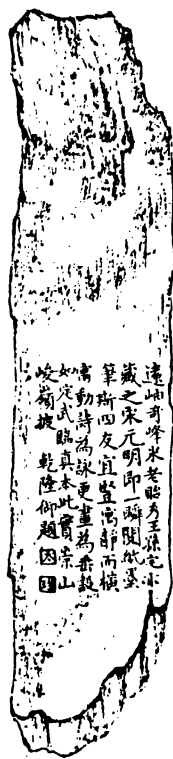 遠岫奇峰米老貽乃王孫宅小
藏之宋元明即一瞬閱紙墨
筆斯四友宜豎寓靜而橫
寓動詩為詠更畫為垂設
如定武臨真本此實崇山
峻嶺披 乾隆御題